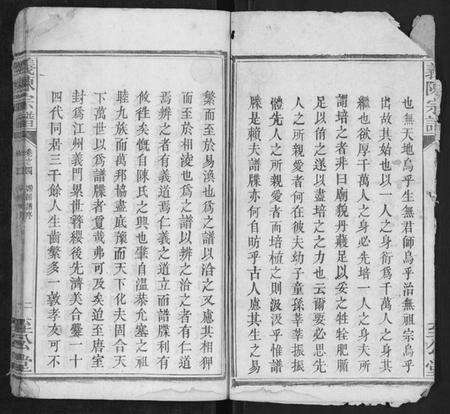 義陳宗譜
也無天地烏乎生無君師烏乎治無祖宗烏乎
出故其始也以一人之身衍爲千萬人之身其
繼也欲厚千萬人之身必先培一人之身夫所
謂培之者非曰廟貌丹雘足以妥之牲牷肥腯
足以侑之遂以盡培之之力也云爾要必思先
人之所親愛者何在彼夫幼子童孫莘莘振振
體先人之所親愛者而培植之則汲汲乎惟譜
牒是賴夫譜牒亦何自昉乎古人慮其生之易
繁而至於易渙也爲之譜以洽之又慮其相狎
而至於相凌也爲之譜以辨之洽之者有仁道
焉辨之者有義道焉仁義之道立而譜牒利有
攸徃矣慨自陳氏之興也肇自溫恭允塞之祖
睦九族而萬邦協盡底豫而天下化夫固合天
下萬世以爲譜牒者蔑哉弗可及矣迨至唐室
封爲江州義門累世簪纓後先濟美合爨一十
四代同居三千餘人生齒繁多一敦孝友可不
義陳宗譜
卷之四
二
至公堂